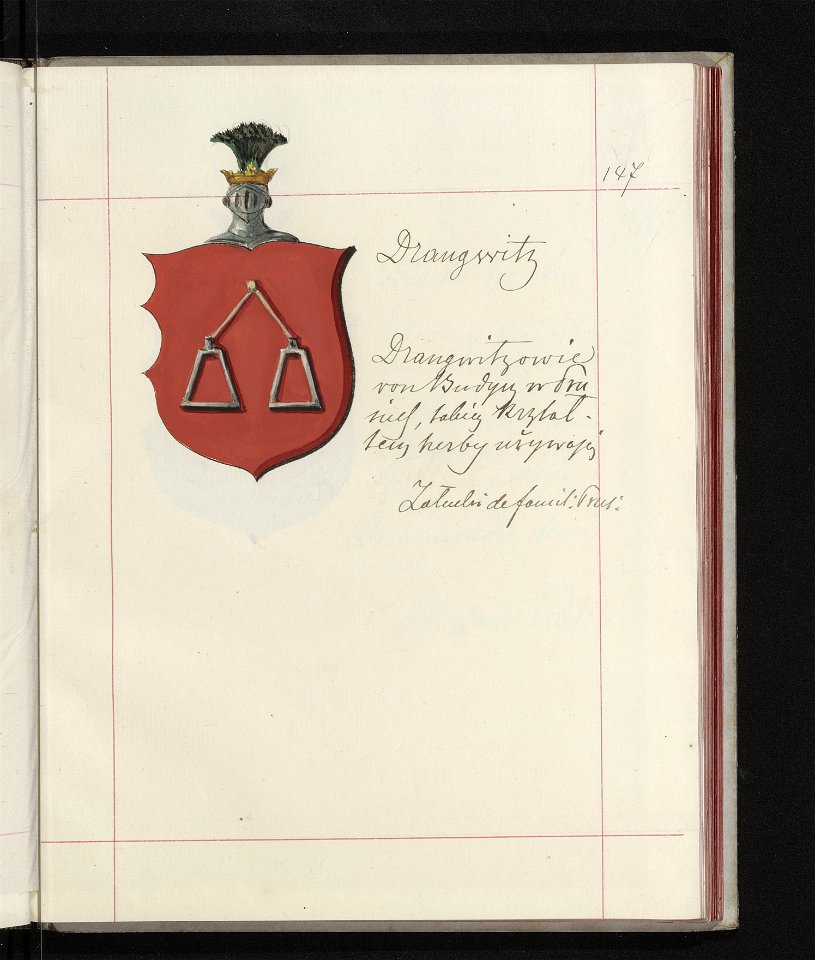 147
Drangwitz
Drangwitzowie
von Budyn w Pru
siech, takiej Krztał-
tem herby używają
Załuski de famil: Prus: